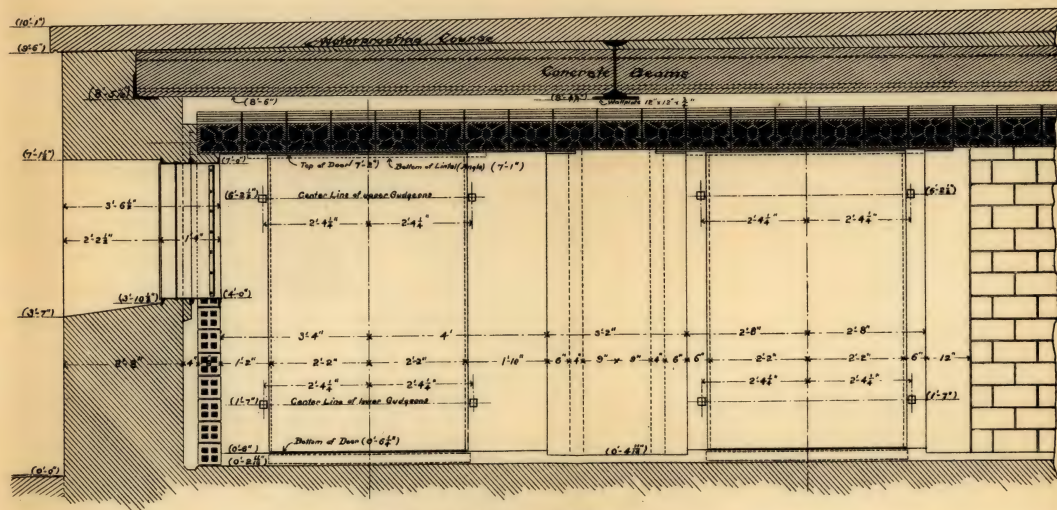 (10'-1")
(9'-6")
Waterproofing Course
Concrete Beams
(8'-6")
Wallplate 12"x12"x¾"
(7'-1½")
(7'-2")
Top of Door (7'-2")
Bottom of Lintel (Angle) (7'-1")
(6'-2½")
Center Line of upper Gudgeons
(6'-2½")
3'-6½"
2'-4¼" 2'-4¼" 2'-4¼" 2'-4¼"
2'-2½" 1'-4"
(3'-10½")
(4'-0")
(3'-7")
3'-4" 4' 3'-2" 2'-8" 2'-8"
2'-8" 4" 1'-2" 2'-2" 2'-2" 1'-10" 6" 4" 9" 9" 4" 6" 6" 2'-2" 2'-2" 6" 12"
2'-4¼" 2'-4¼" 2'-4¼" 2'-4¼"
(1'-7")
Center Line of lower Gudgeons
(1'-7")
Bottom of Door (0'-6¼")
(0'-6")
(0'-0")